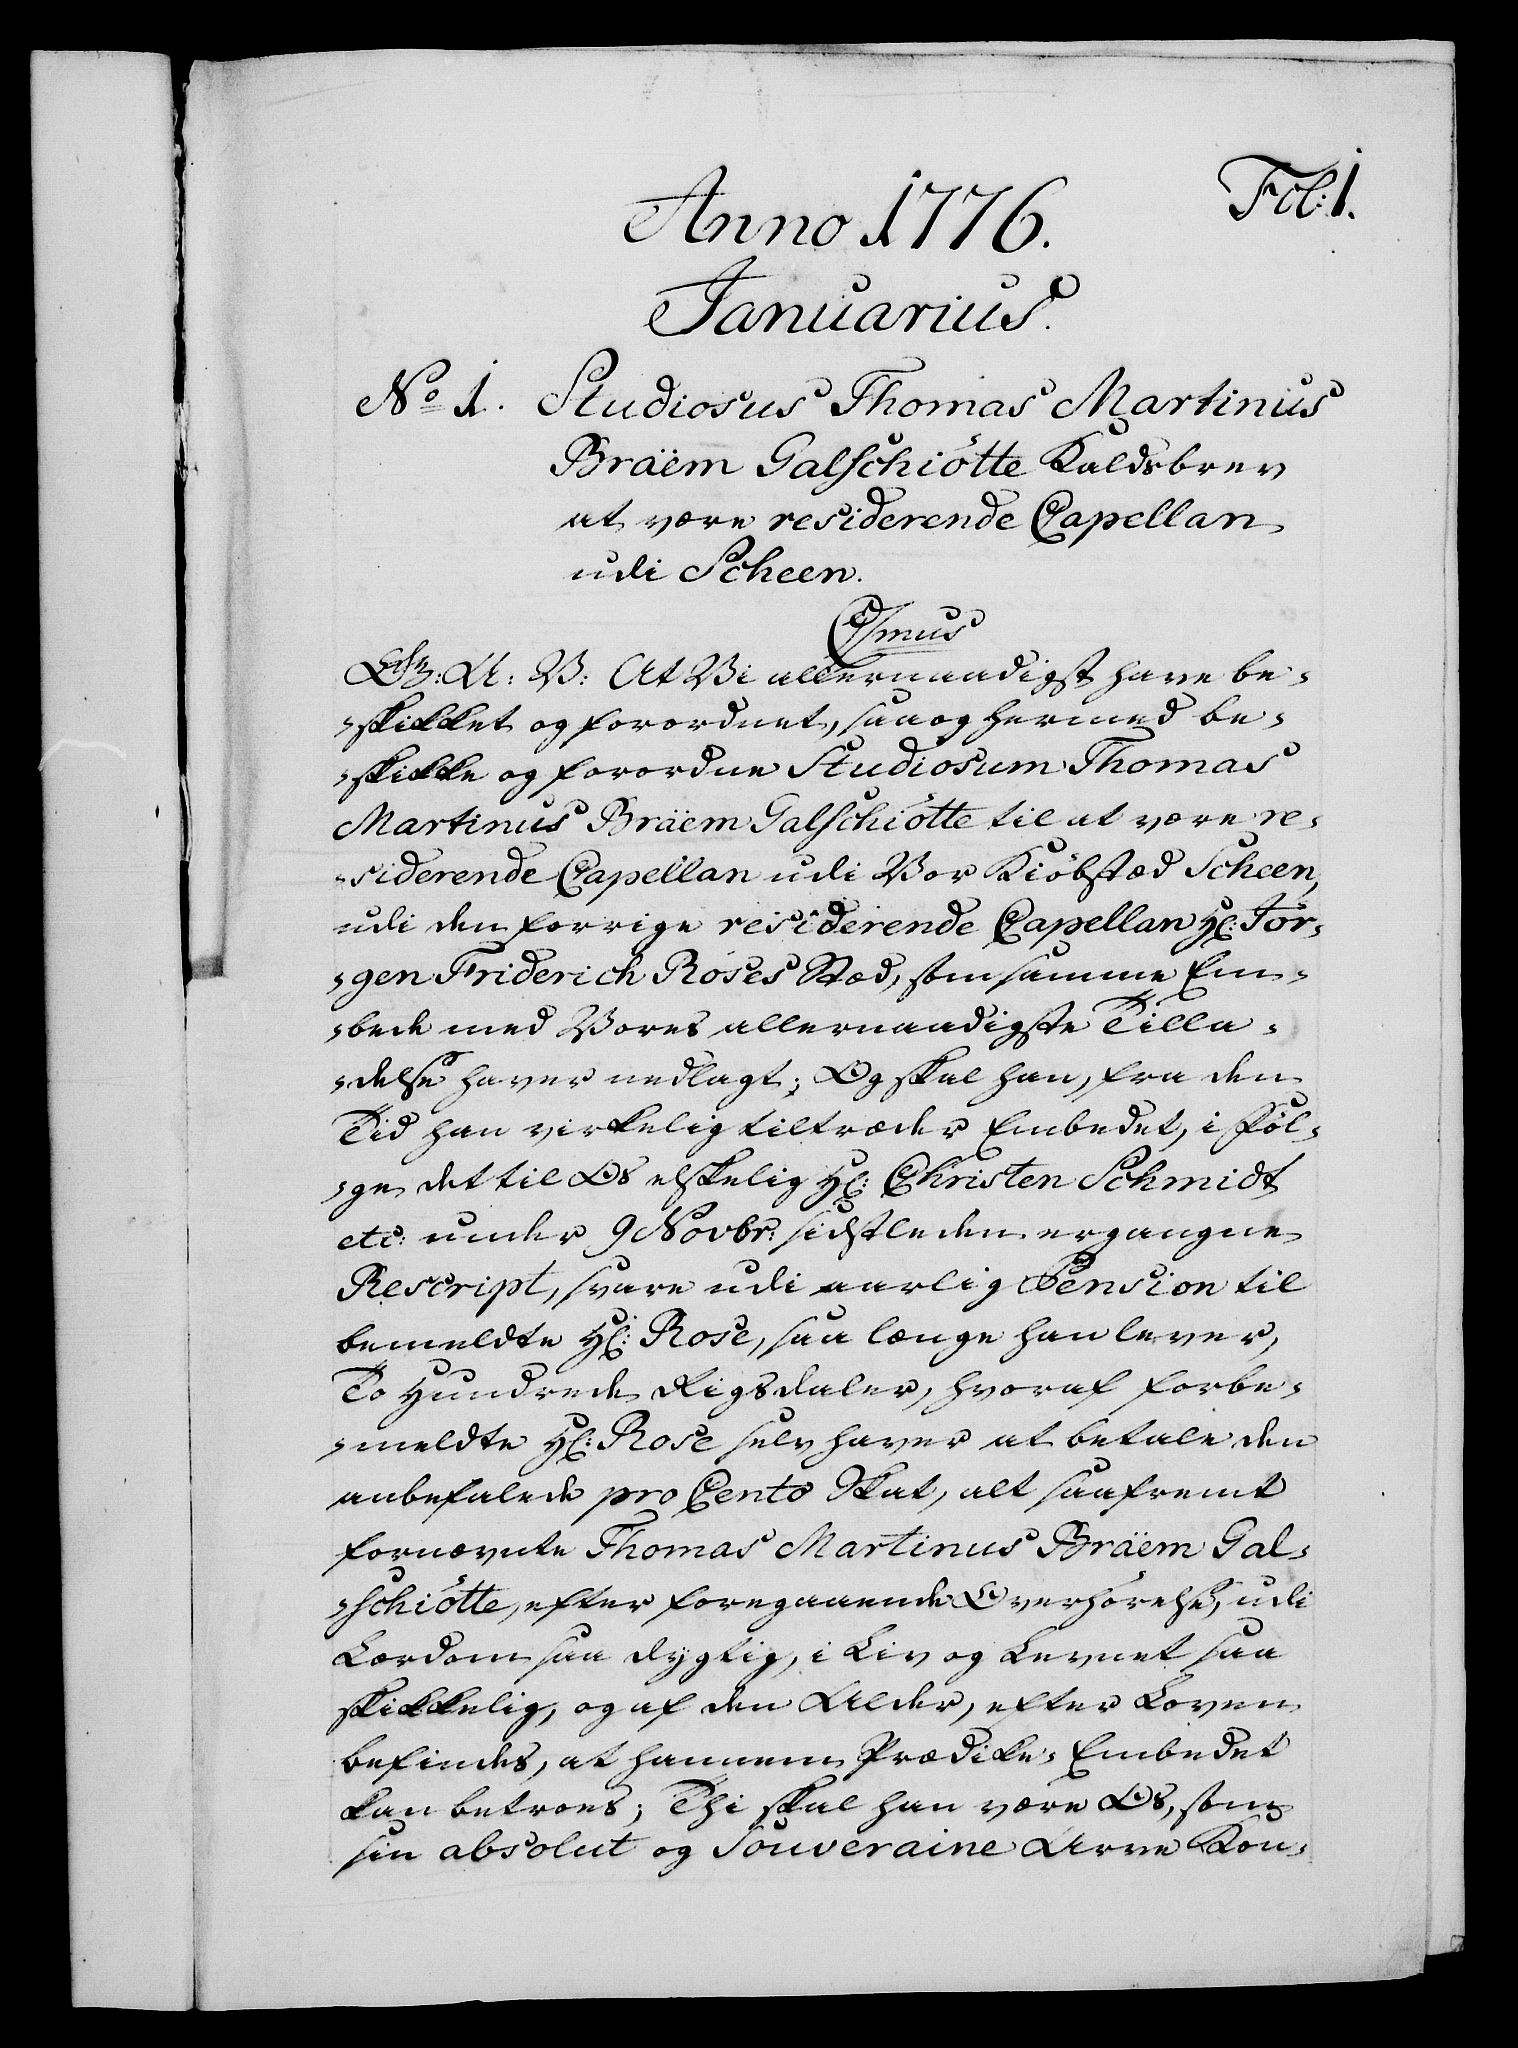 Fol: 1.
Anno 1776.
Januarius.
No 1. Studiosus Thomas Martinus
Bräem Galschiötte Kaldsbrev
at være residerende Capellan
udi Scheen.
C7mus
G: A: V: At Vi allernaadigst have be-
-skikket og forordnet, saa og hermed be-
-skikke og forordne Studiosum Thomas
Martinus Bräem Galschiötte til at være re-
-siderende Capellan udi Vor Kiöbstæd Scheen,
udi den forrige residerende Capellan Hr: Jör-
-gen Friderich Roses Stæd, som samme Em-
-bede med Vores allernaadigste Tilla-
-delse haver nedlagt; Og skal han, fra den
Tid han virkelig tiltræder Embedet, i Föl-
-ge det til Os elskelig Hr: Christen Schmidt
etc: under 9 Novbr: sidstleden ergangne
Rescript, svare udi aarlig Pension til
bemeldte Hr: Rose, saa længe han lever,
To Hundrede Rigsdaler, hvoraf forbe-
-meldte Hr: Rose selv haver at betale den
anbefalede pro Cento Skat, alt saafremt
fornævnte Thomas Martinus Bräem Gal-
-schiötte, efter foregaaende Overhörelse, udi
Lærdom saa dygtig, i Liv og Levnet saa
skikkelig, og af den Alder, efter Loven
befindes, at hannem Prædike-Embedet
kan betroes; Thi skal han være Os, som
sin absolut og Souveraine Arve Kon-